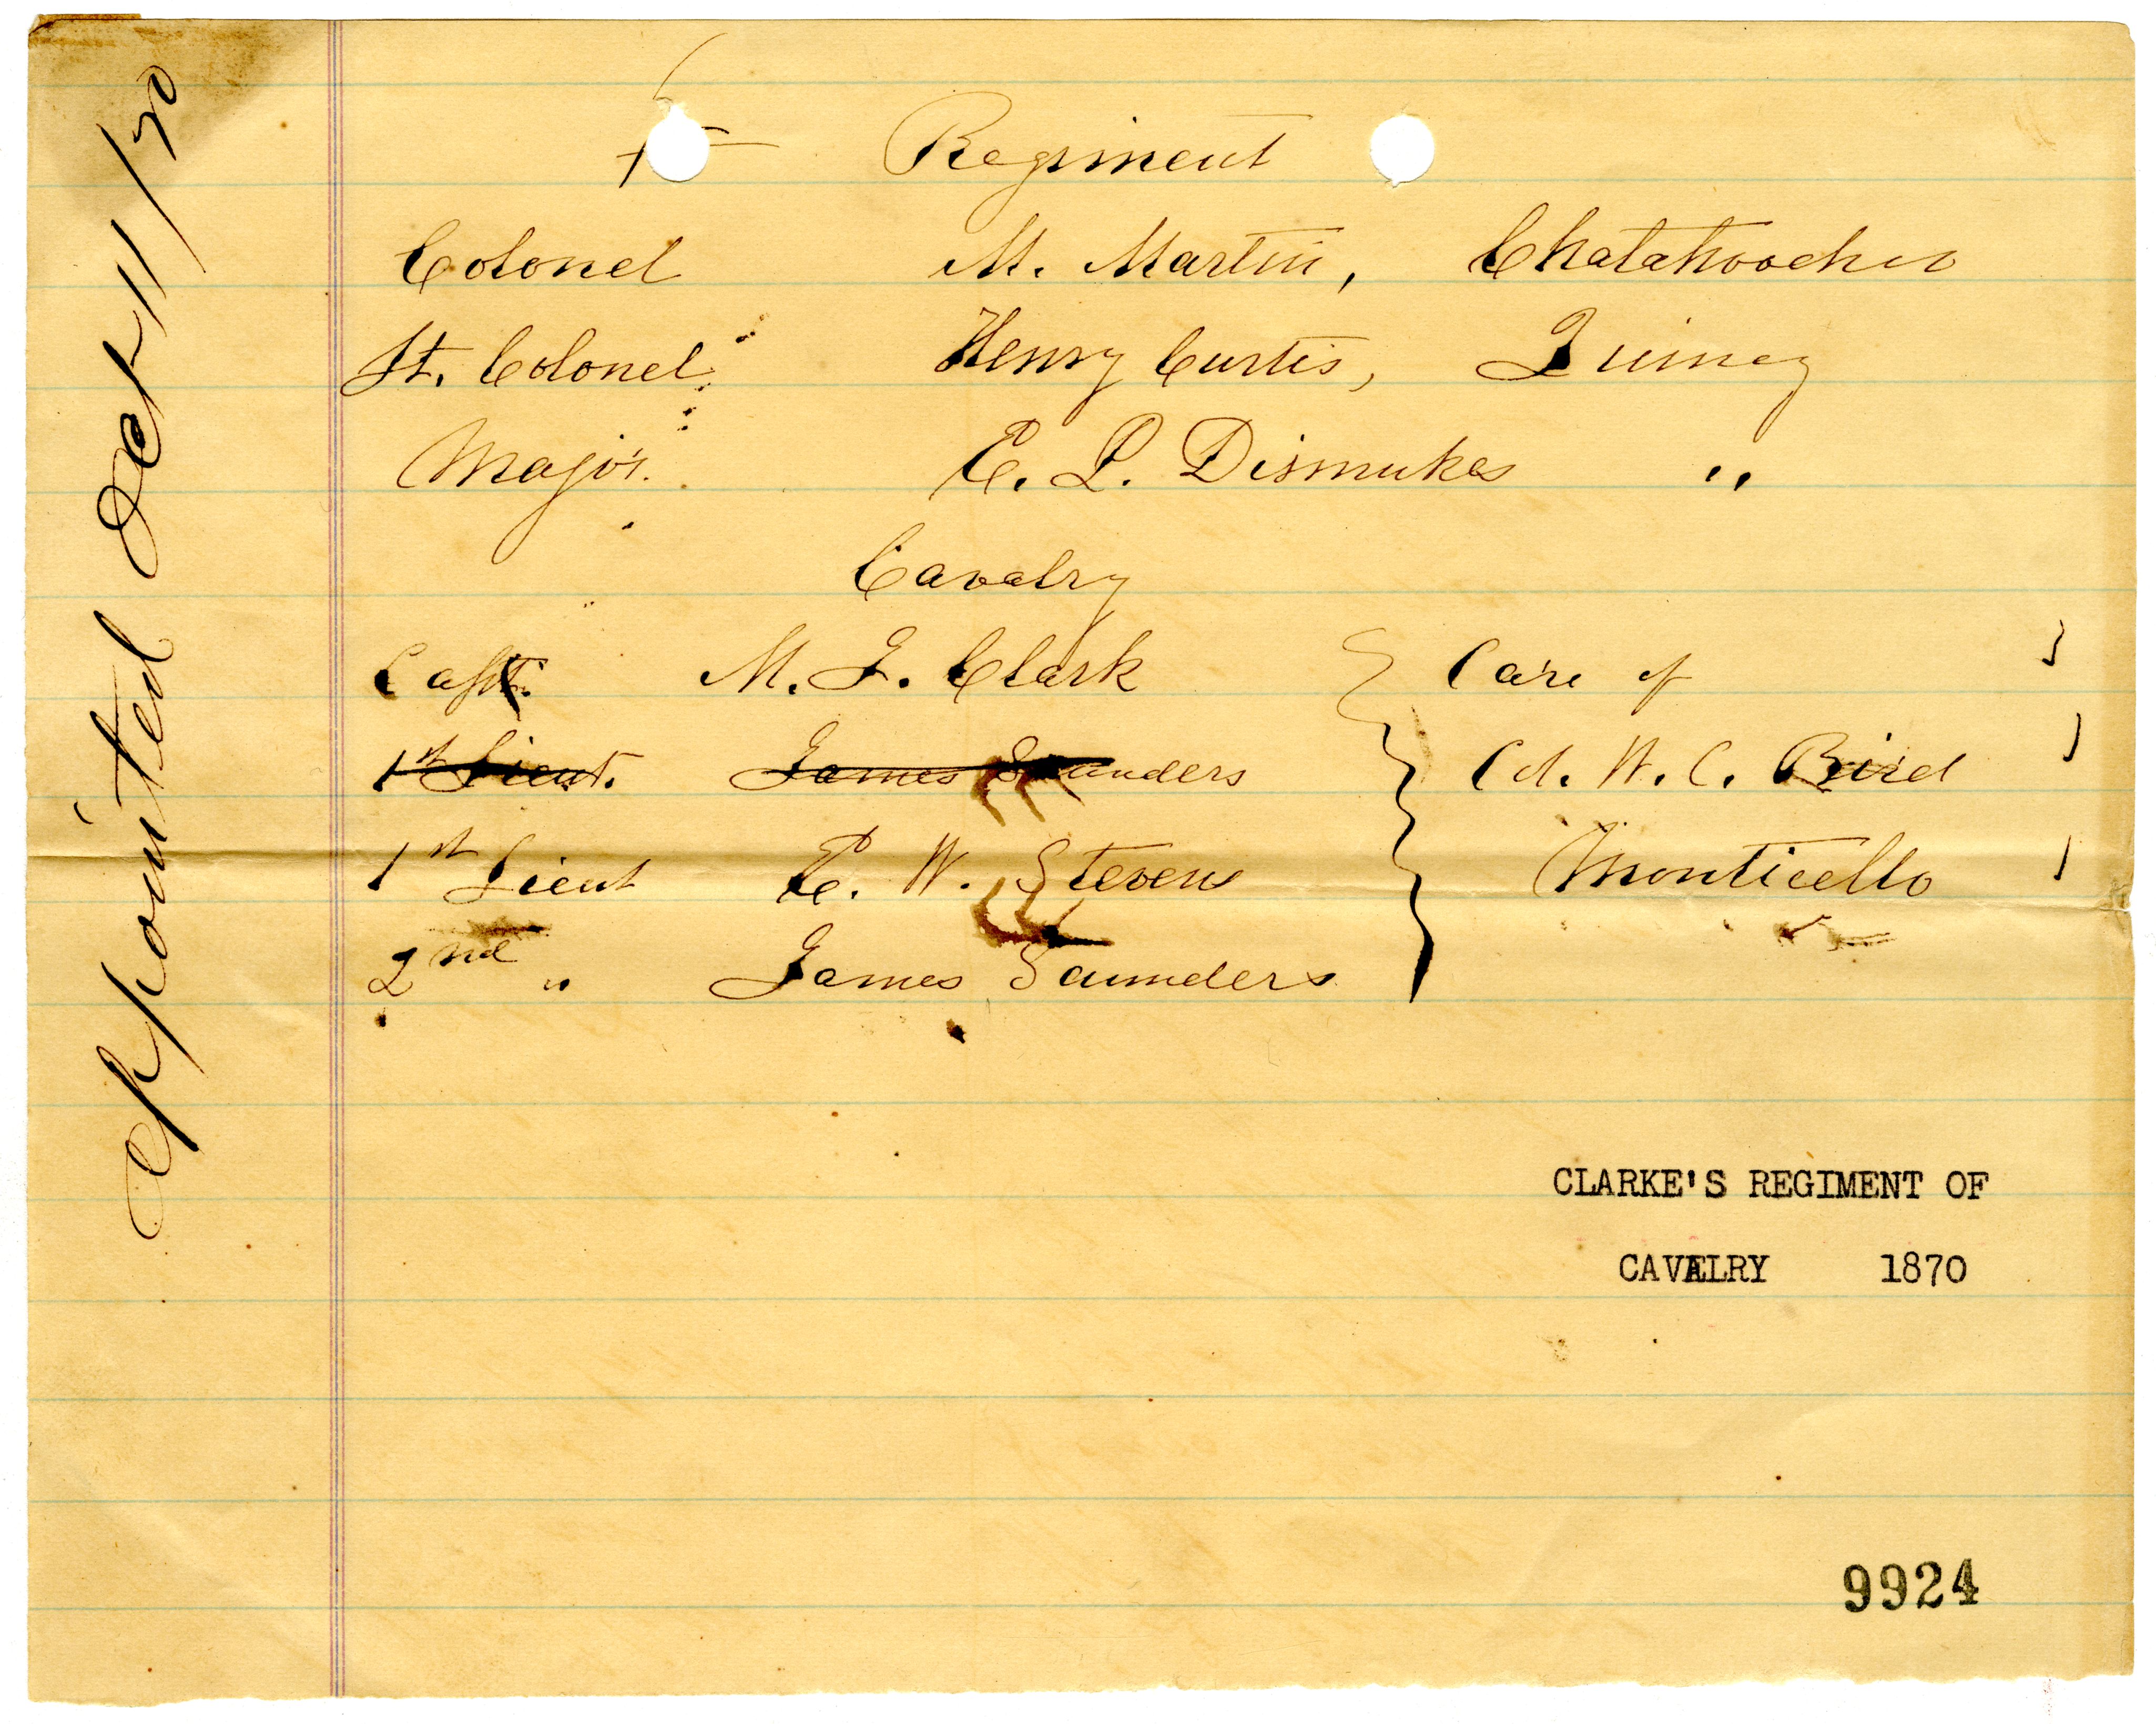 Regiment
Colonel M. Martin, Chatahoochee
Lt. Colonel Henry Curtis, Quincy
Major. E. L. Dismukes "
Cavalry
Capt. M. J. Clark Care of
1st Lieut. James Saunders Col. W. C. Bird
1st Lieut E. W. Stevens Monticello
2nd " James Saunders
Appointed Oct 11/70
CLARKE'S REGIMENT OF
CAVALRY 1870
9924